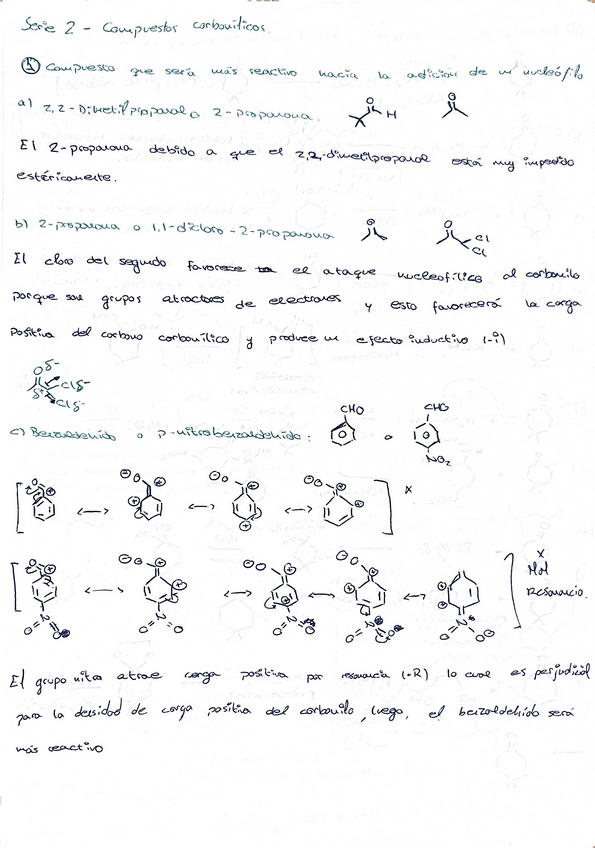 Serie 2 - Compuestos carbonílicos.
① Compuesto que sería más reactivo hacia la adición de un nucleófilo
a) 2,2-Dimetilpropanal o 2-propanona.
O
H
O
El 2-propanona debido a que el 2,2-dimetilpropanal está muy impedido
estéricamente.
b) 2-propanona o 1,1-dicloro-2-propanona
O
O
Cl
Cl
El cloro del segundo favorece el ataque nucleofílico al carbonilo
porque son grupos atractores de electrones y esto favorecerá la carga
positiva del carbono carbonílico y produce un efecto inductivo (-i)
Oδ-
δ+
Clδ-
Clδ-
c) Benzaldehído o p-nitrobenzaldehído:
CHO
o
CHO
NO2
x
x
Mal
Resonancia.
El grupo nitro atrae carga positiva por resonancia (-R) lo cual es perjudicial
para la densidad de carga positiva del carbonilo, luego, el benzaldehído será
más reactivo